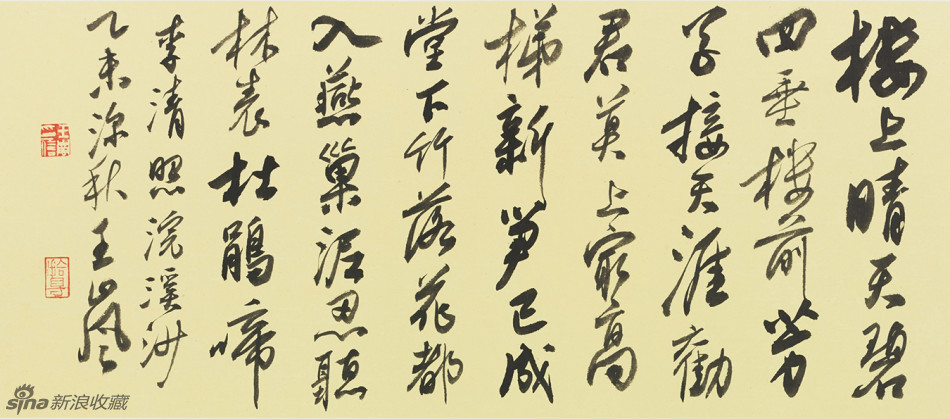 楼上晴天碧
四垂楼前芳
草接天涯勸
君莫上最高
梯新笋已成
堂下竹落花都
入燕巢泥忍聽
林表杜鵑啼
李清照浣溪沙
乙未深秋王嵐
sina新浪收藏